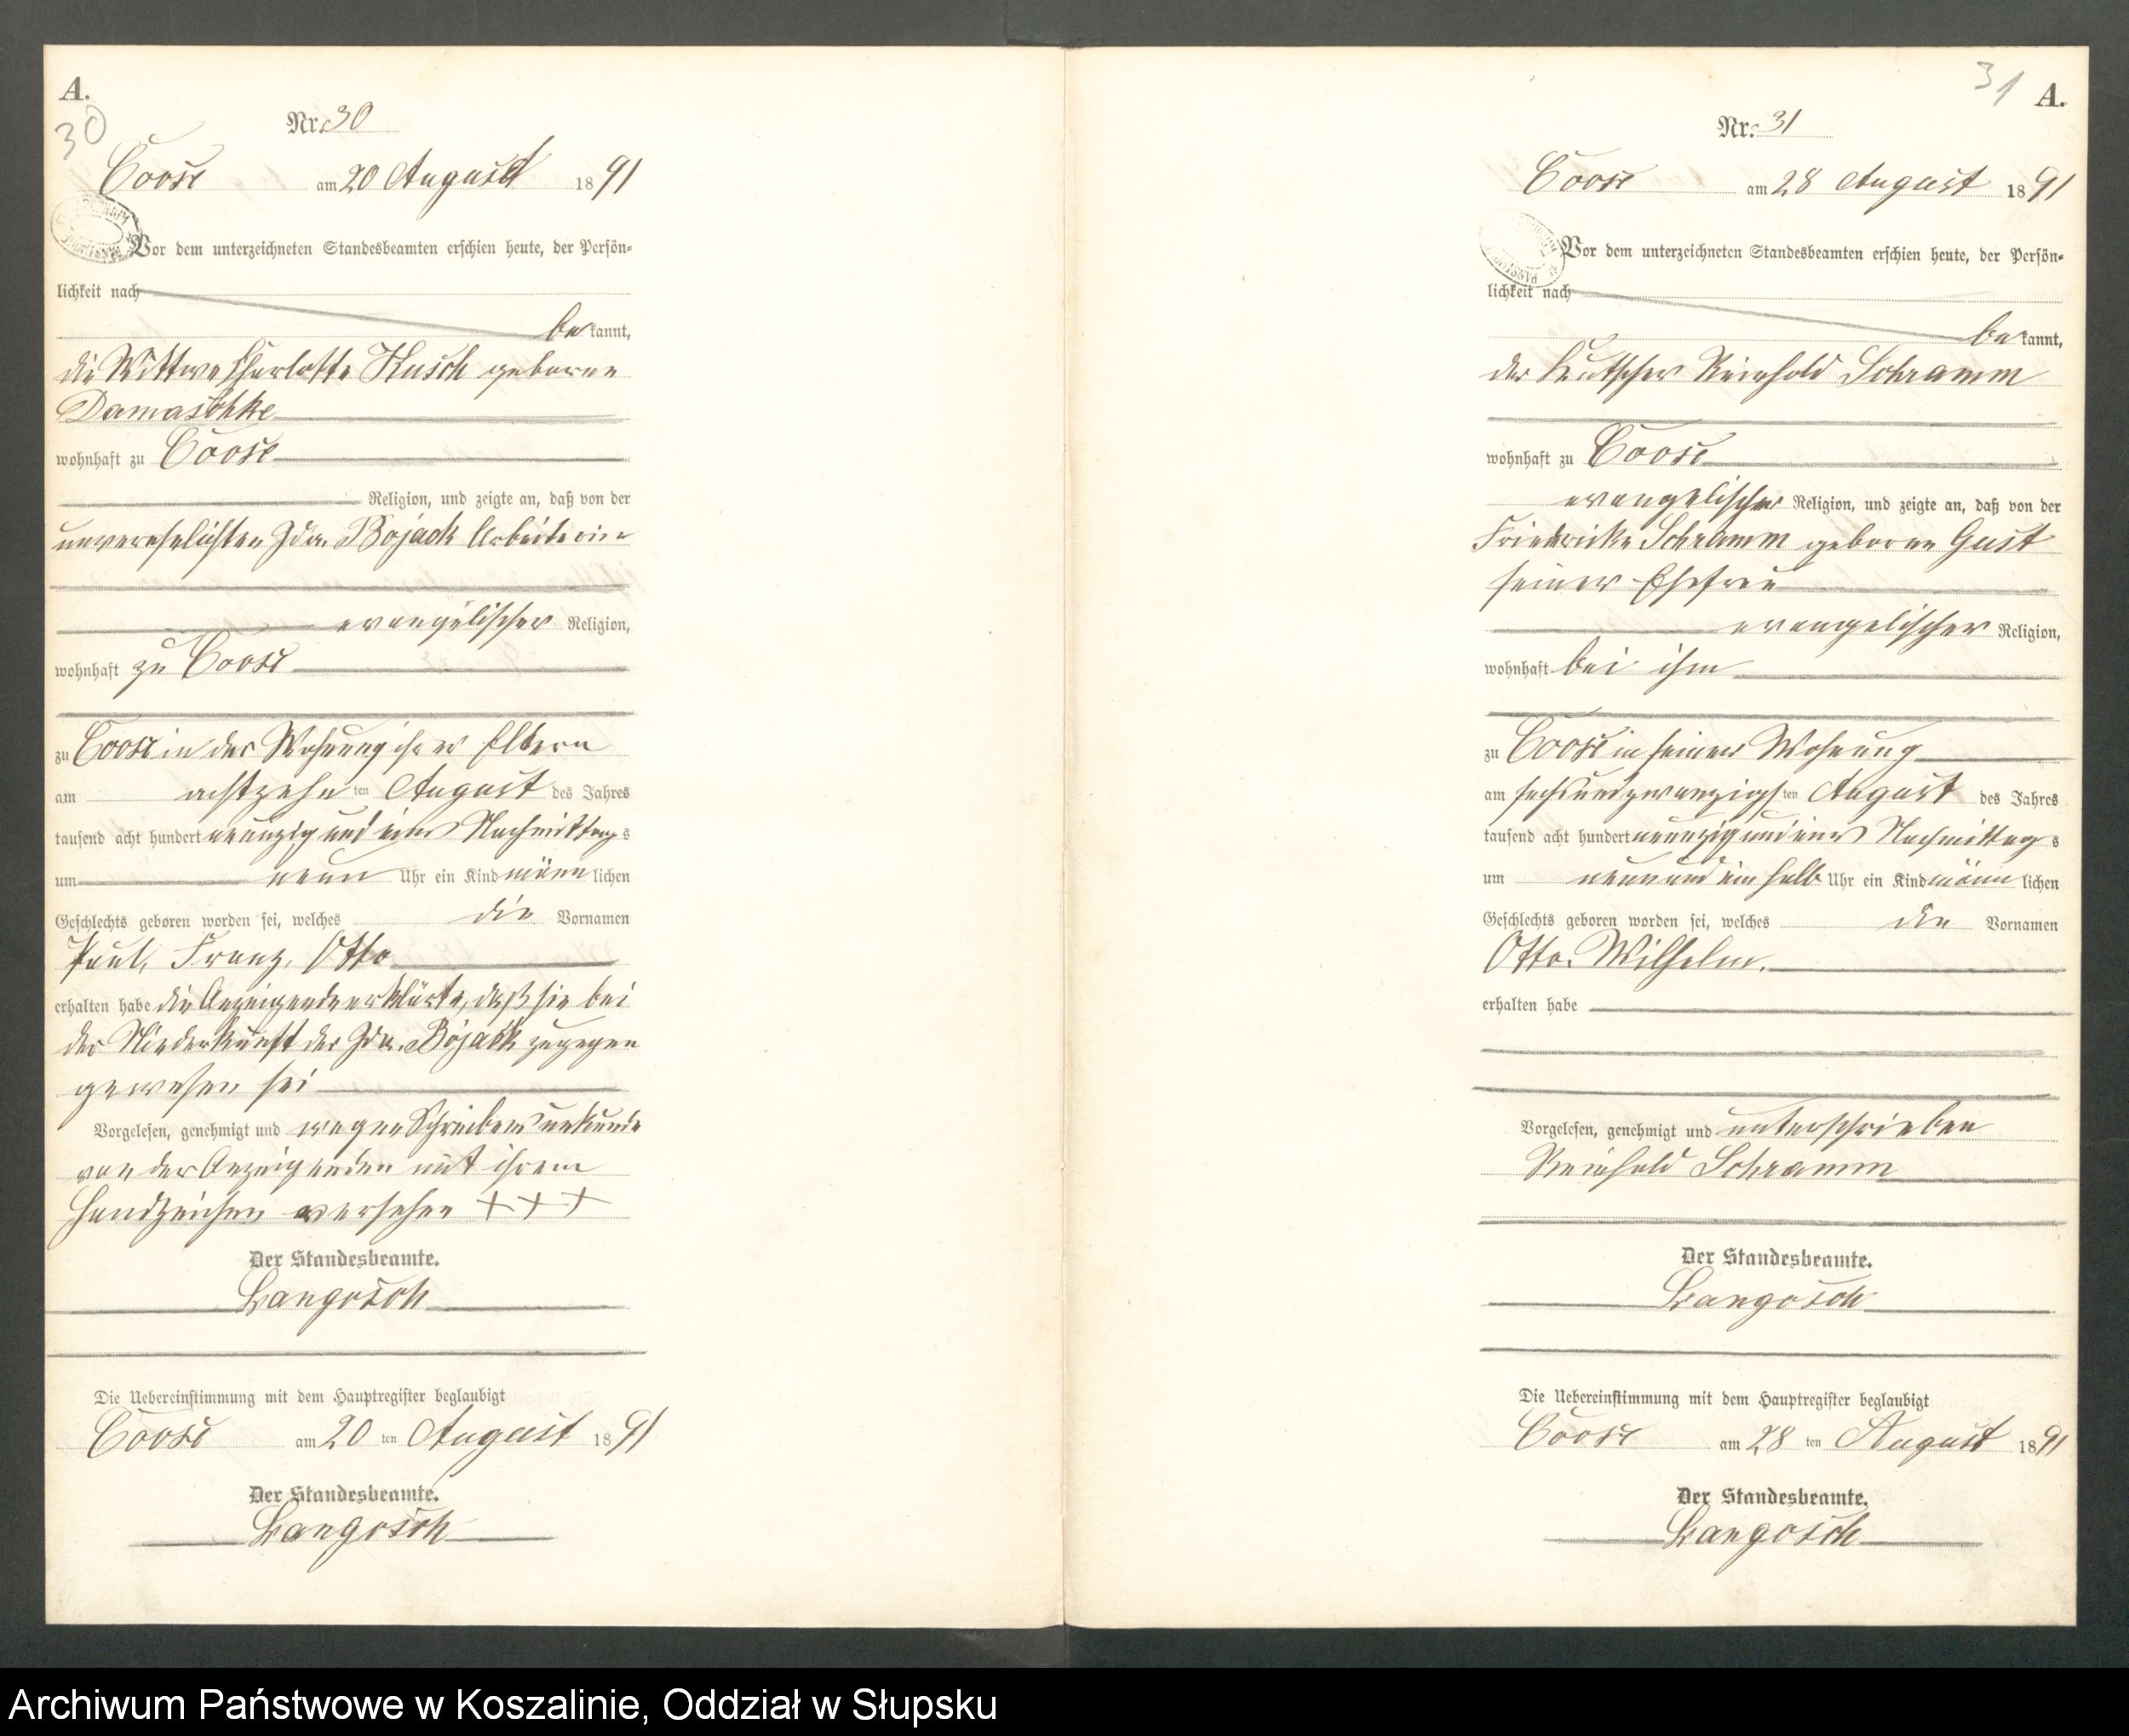 A.
30
Nr. 30
Coose am 20 August 1891
Vor dem unterzeichneten Standesbeamten erschien heute, der Persön-
lichkeit nach
bekannt,
die Wittwe Charlotte Kusch geborene
Damaschke
wohnhaft zu Coose
Religion, und zeigte an, daß von der
unverehelichten Ida Bojack Arbeiterin
evangelischer Religion,
wohnhaft zu Coose
zu Coose in der Wohnung ihrer Eltern
am achtzehnten August des Jahres
tausend acht hundert neunzig und eins Nachmittags
um neun Uhr ein Kind männlichen
Geschlechts geboren worden sei, welches die Vornamen
Paul, Franz, Otto
erhalten habe die Anzeigende erklärte, daß sie bei
der Niederkunft der Ida Bojack zugegen
gewesen sei
Vorgelesen, genehmigt und wegen Schreibensunkunde
von der Anzeigenden mit ihrem
Handzeichen versehen +++
Der Standesbeamte.
Langosch
Die Uebereinstimmung mit dem Hauptregister beglaubigt
Coose am 20ten August 1891
Der Standesbeamte.
Langosch
31 A.
Nr. 31
Coose am 28 August 1891
Vor dem unterzeichneten Standesbeamten erschien heute, der Persön-
lichkeit nach
bekannt,
der Kutscher Reinhold Schramm
wohnhaft zu Coose
evangelischer Religion, und zeigte an, daß von der
Friedericke Schramm geborene Gust
seiner Ehefrau
evangelischer Religion,
wohnhaft bei ihm
zu Coose in seiner Wohnung
am sechsundzwanzigsten August des Jahres
tausend acht hundert neunzig und eins Nachmittags
um neun und ein halb Uhr ein Kind männlichen
Geschlechts geboren worden sei, welches die Vornamen
Otto. Wilhelm.
erhalten habe
Vorgelesen, genehmigt und unterschrieben
Reinhold Schramm
Der Standesbeamte.
Langosch
Die Uebereinstimmung mit dem Hauptregister beglaubigt
Coose am 28ten August 1891
Der Standesbeamte.
Langosch
Archiwum Państwowe w Koszalinie, Oddział w Słupsku